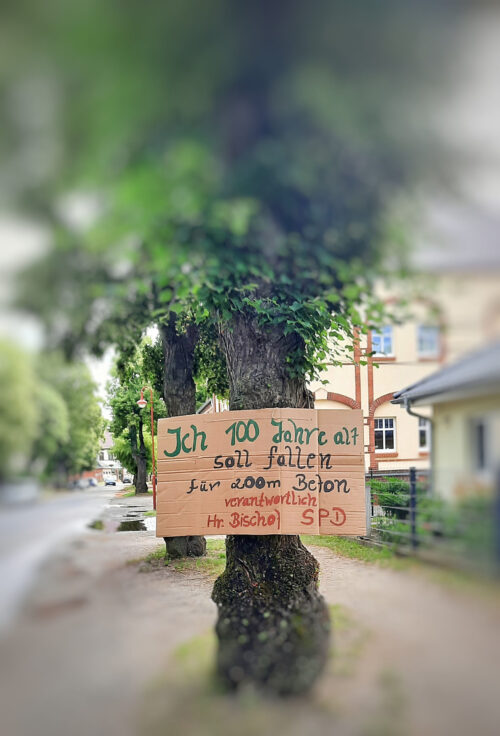 Ich 100 Jahre alt
soll fallen
für 200m Beton
verantwortlich
Hr. Bischof SPD